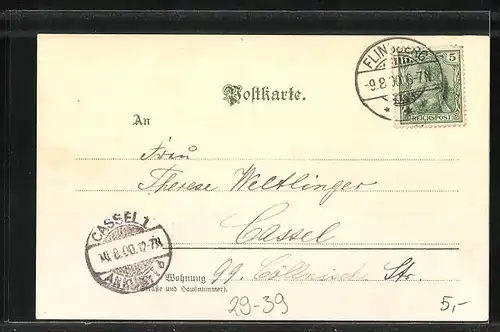 FLINSBERG
-9.8.00.6-7N
5
REICHSPOST
Postkarte.
An
Frau
Therese Weltlinger
Cassel
CASSEL 1
10.8.00.12-
ANKUNFT
Wohnung 99. Cöllnische Str.
(Straße und Hausnummer).
29-39
5,-